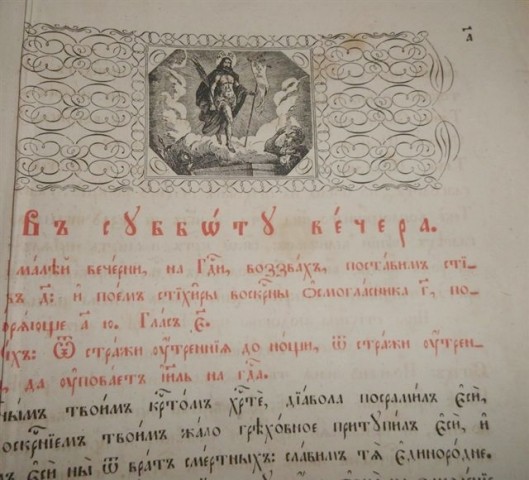 а҃
Въ сꙋббѡ́тꙋ ве́чера.
ма́лѣй вече́рни, на Гдⷭ҇и, воззва́хъ, поста́вимъ стї-
въ д҃: и҆ пое́мъ стїхи̑ры воскрⷭ҇ны ѻ҆смогла́сника г҃, по-
оря́юще а҃ ю. Гла́съ є҃.
и́хъ: Ѿ стра́жи ᲂу҆́треннїѧ до но́щи, ѿ стра́жи ᲂу҆́трен-
да ᲂу҆пова́етъ і҆и҃ль на гдⷭ҇а.
нымъ твои́мъ крⷭ҇то́мъ хрⷭ҇те́, дїа́вола посрами́лъ є҆сѝ,
оскрⷭ҇нїемъ твои́мъ жа́ло грѣхо́вное притупи́лъ є҆сѝ, и҆
є҆сѝ ны̀ ѿ вра́тъ сме́ртныхъ: сла́вимъ тѧ̀ є҆диноро́дне.